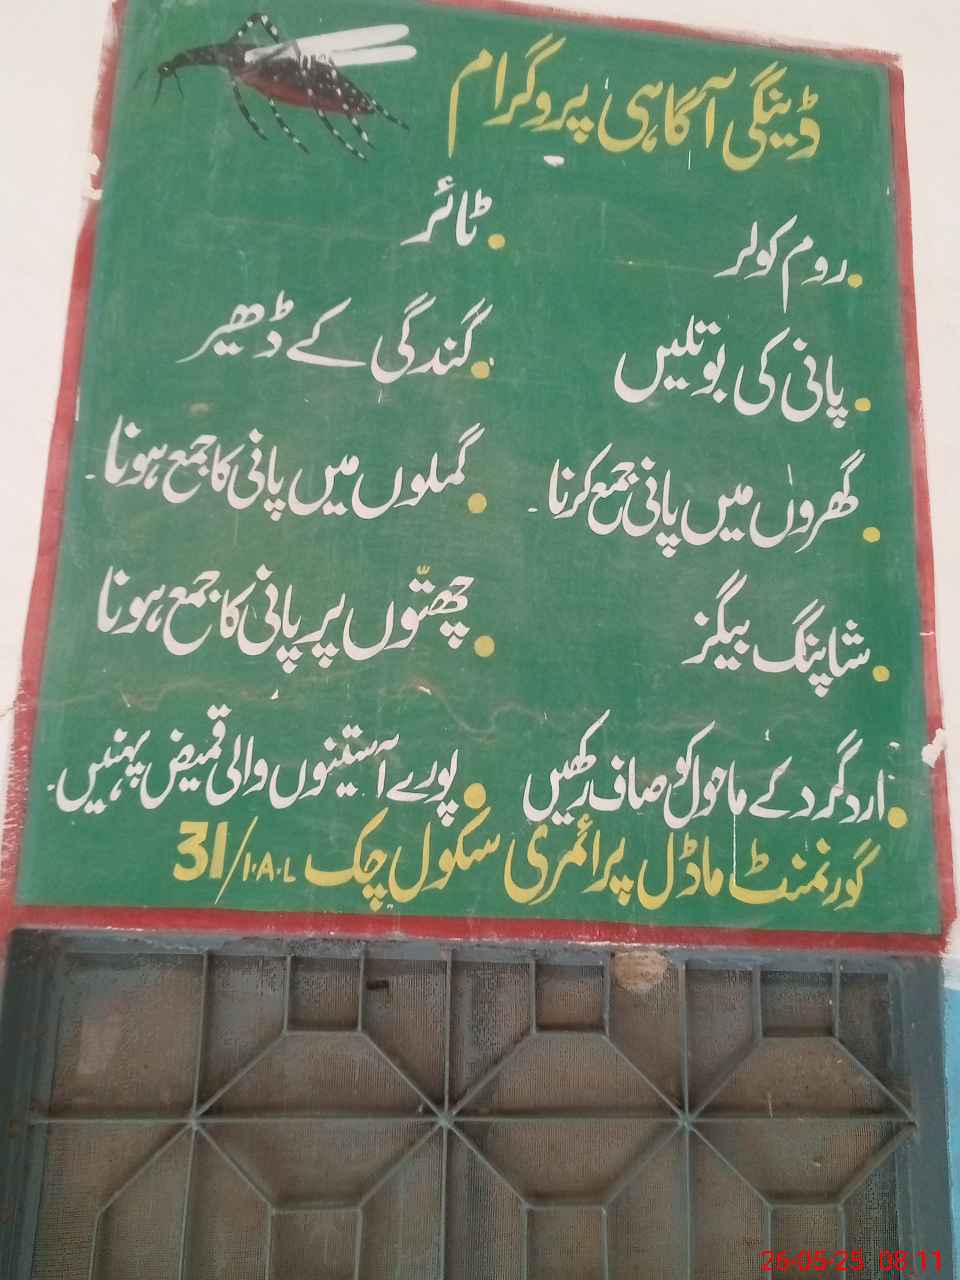 ڈینگی آگاہی پروگرام
روم کولر
ٹائر
پانی کی بوتلیں
گندگی کے ڈھیر
گھروں میں پانی جمع کرنا۔
گملوں میں پانی کا جمع ہونا۔
شاپنگ بیگز
چھتّوں پر پانی کا جمع ہونا
اردگرد کے ماحول کو صاف رکھیں
پورے آستینوں والی قمیض پہنیں۔
گورنمنٹ ماڈل پرائمری سکول چک 31/1.A.L
26-05-25 08:11